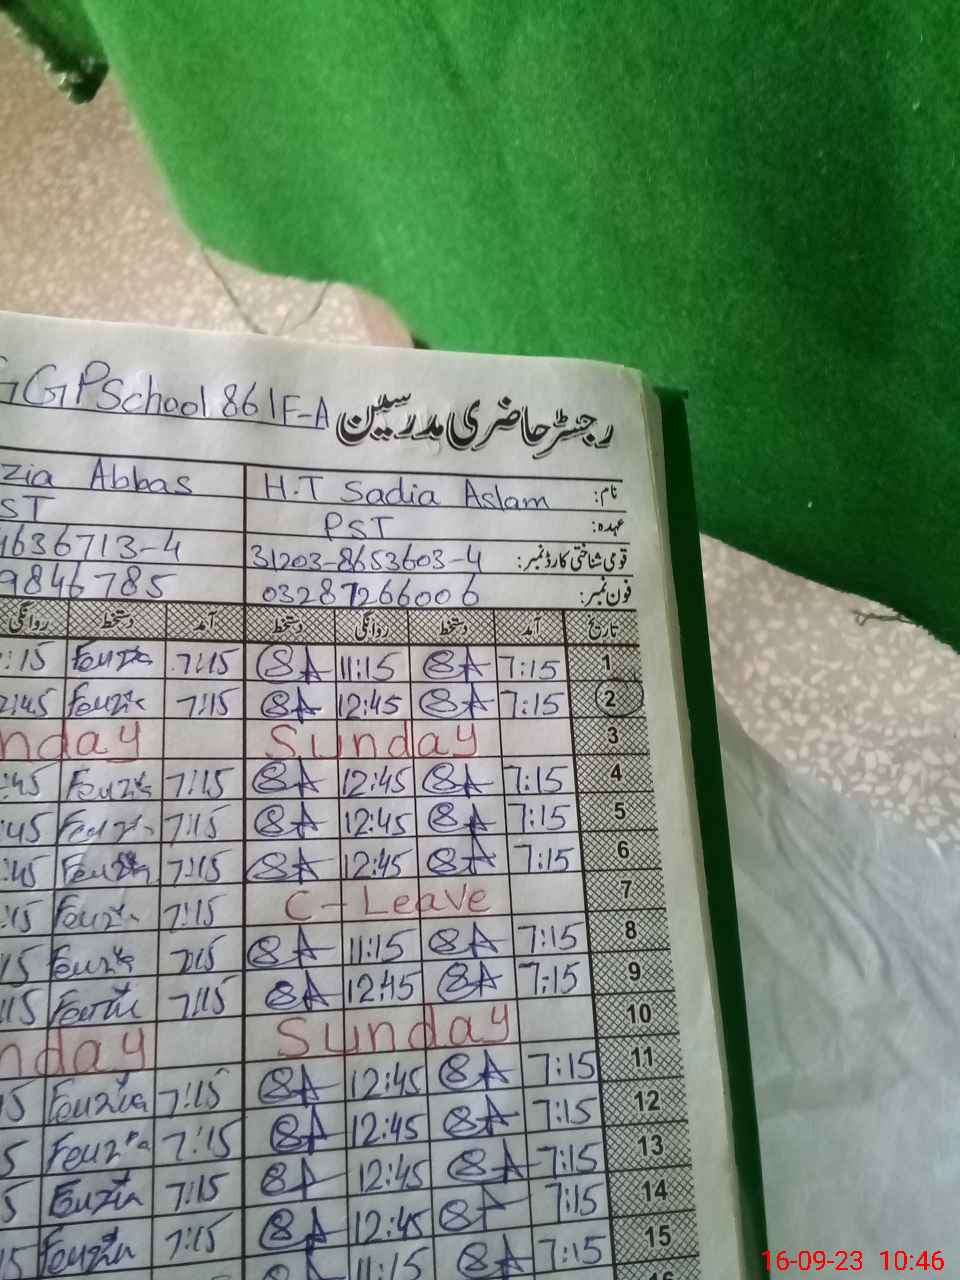 GGPSchool 861F-A رجسٹر حاضری مدرسین
zia Abbas H.T Sadia Aslam نام:
ST PST عہدہ:
4636713-4 31203-8653603-4 قومی شناختی کارڈ نمبر:
9846785 03287266006 فون نمبر:
روانگی دستخط آمد دستخط روانگی دستخط آمد تاریخ
:15 Fouzia 7:15 SA 11:15 SA 7:15 1
2:45 Fouzia 7:15 SA 12:45 SA 7:15 2
nday Sunday 3
:45 Fouzia 7:15 SA 12:45 SA 7:15 4
:45 Fouzia 7:15 SA 12:45 SA 7:15 5
:45 Fouzia 7:15 SA 12:45 SA 7:15 6
:15 Fouzia 7:15 C-Leave 7
15 Fouzia 7:15 SA 11:15 SA 7:15 8
:15 Fouzia 7:15 SA 12:45 SA 7:15 9
nday Sunday 10
5 Fouzia 7:15 SA 12:45 SA 7:15 11
5 Fouzia 7:15 SA 12:45 SA 7:15 12
5 Fouzia 7:15 SA 12:45 SA 7:15 13
15 Fouzia 7:15 SA 12:45 SA 7:15 14
11:15 SA 7:15 15
16
16-09-23 10:46